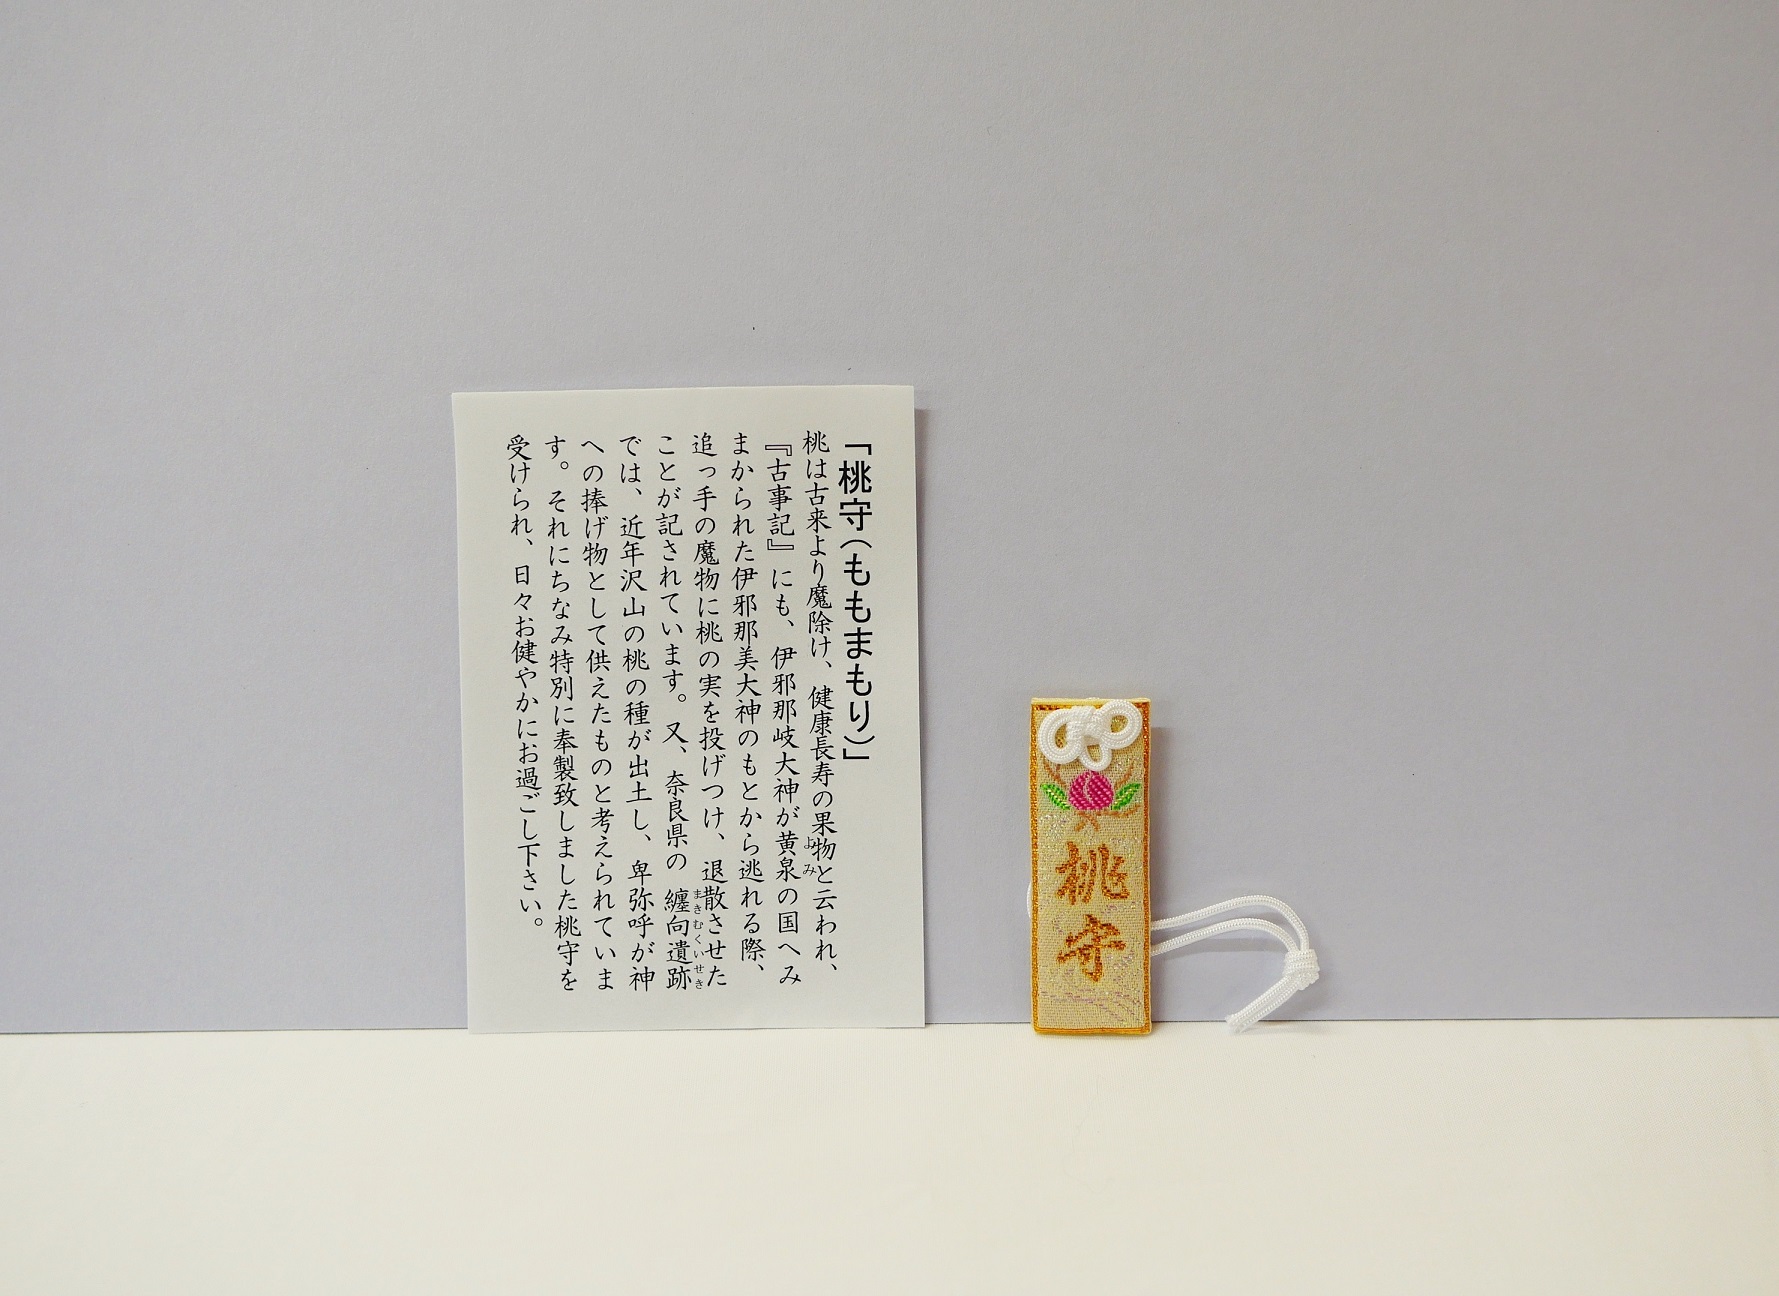 「桃守(ももまもり)」
桃は古来より魔除け、健康長寿の果物と云われ、
『古事記』にも、伊邪那岐大神が黄泉の国へみ
よみ
まかられた伊邪那美大神のもとから逃れる際、
追っ手の魔物に桃の実を投げつけ、退散させた
ことが記されています。又、奈良県の纏向遺跡
まきむくいせき
では、近年沢山の桃の種が出土し、卑弥呼が神
への捧げ物として供えたものと考えられていま
す。それにちなみ特別に奉製致しました桃守を
受けられ、日々お健やかにお過ごし下さい。
桃守